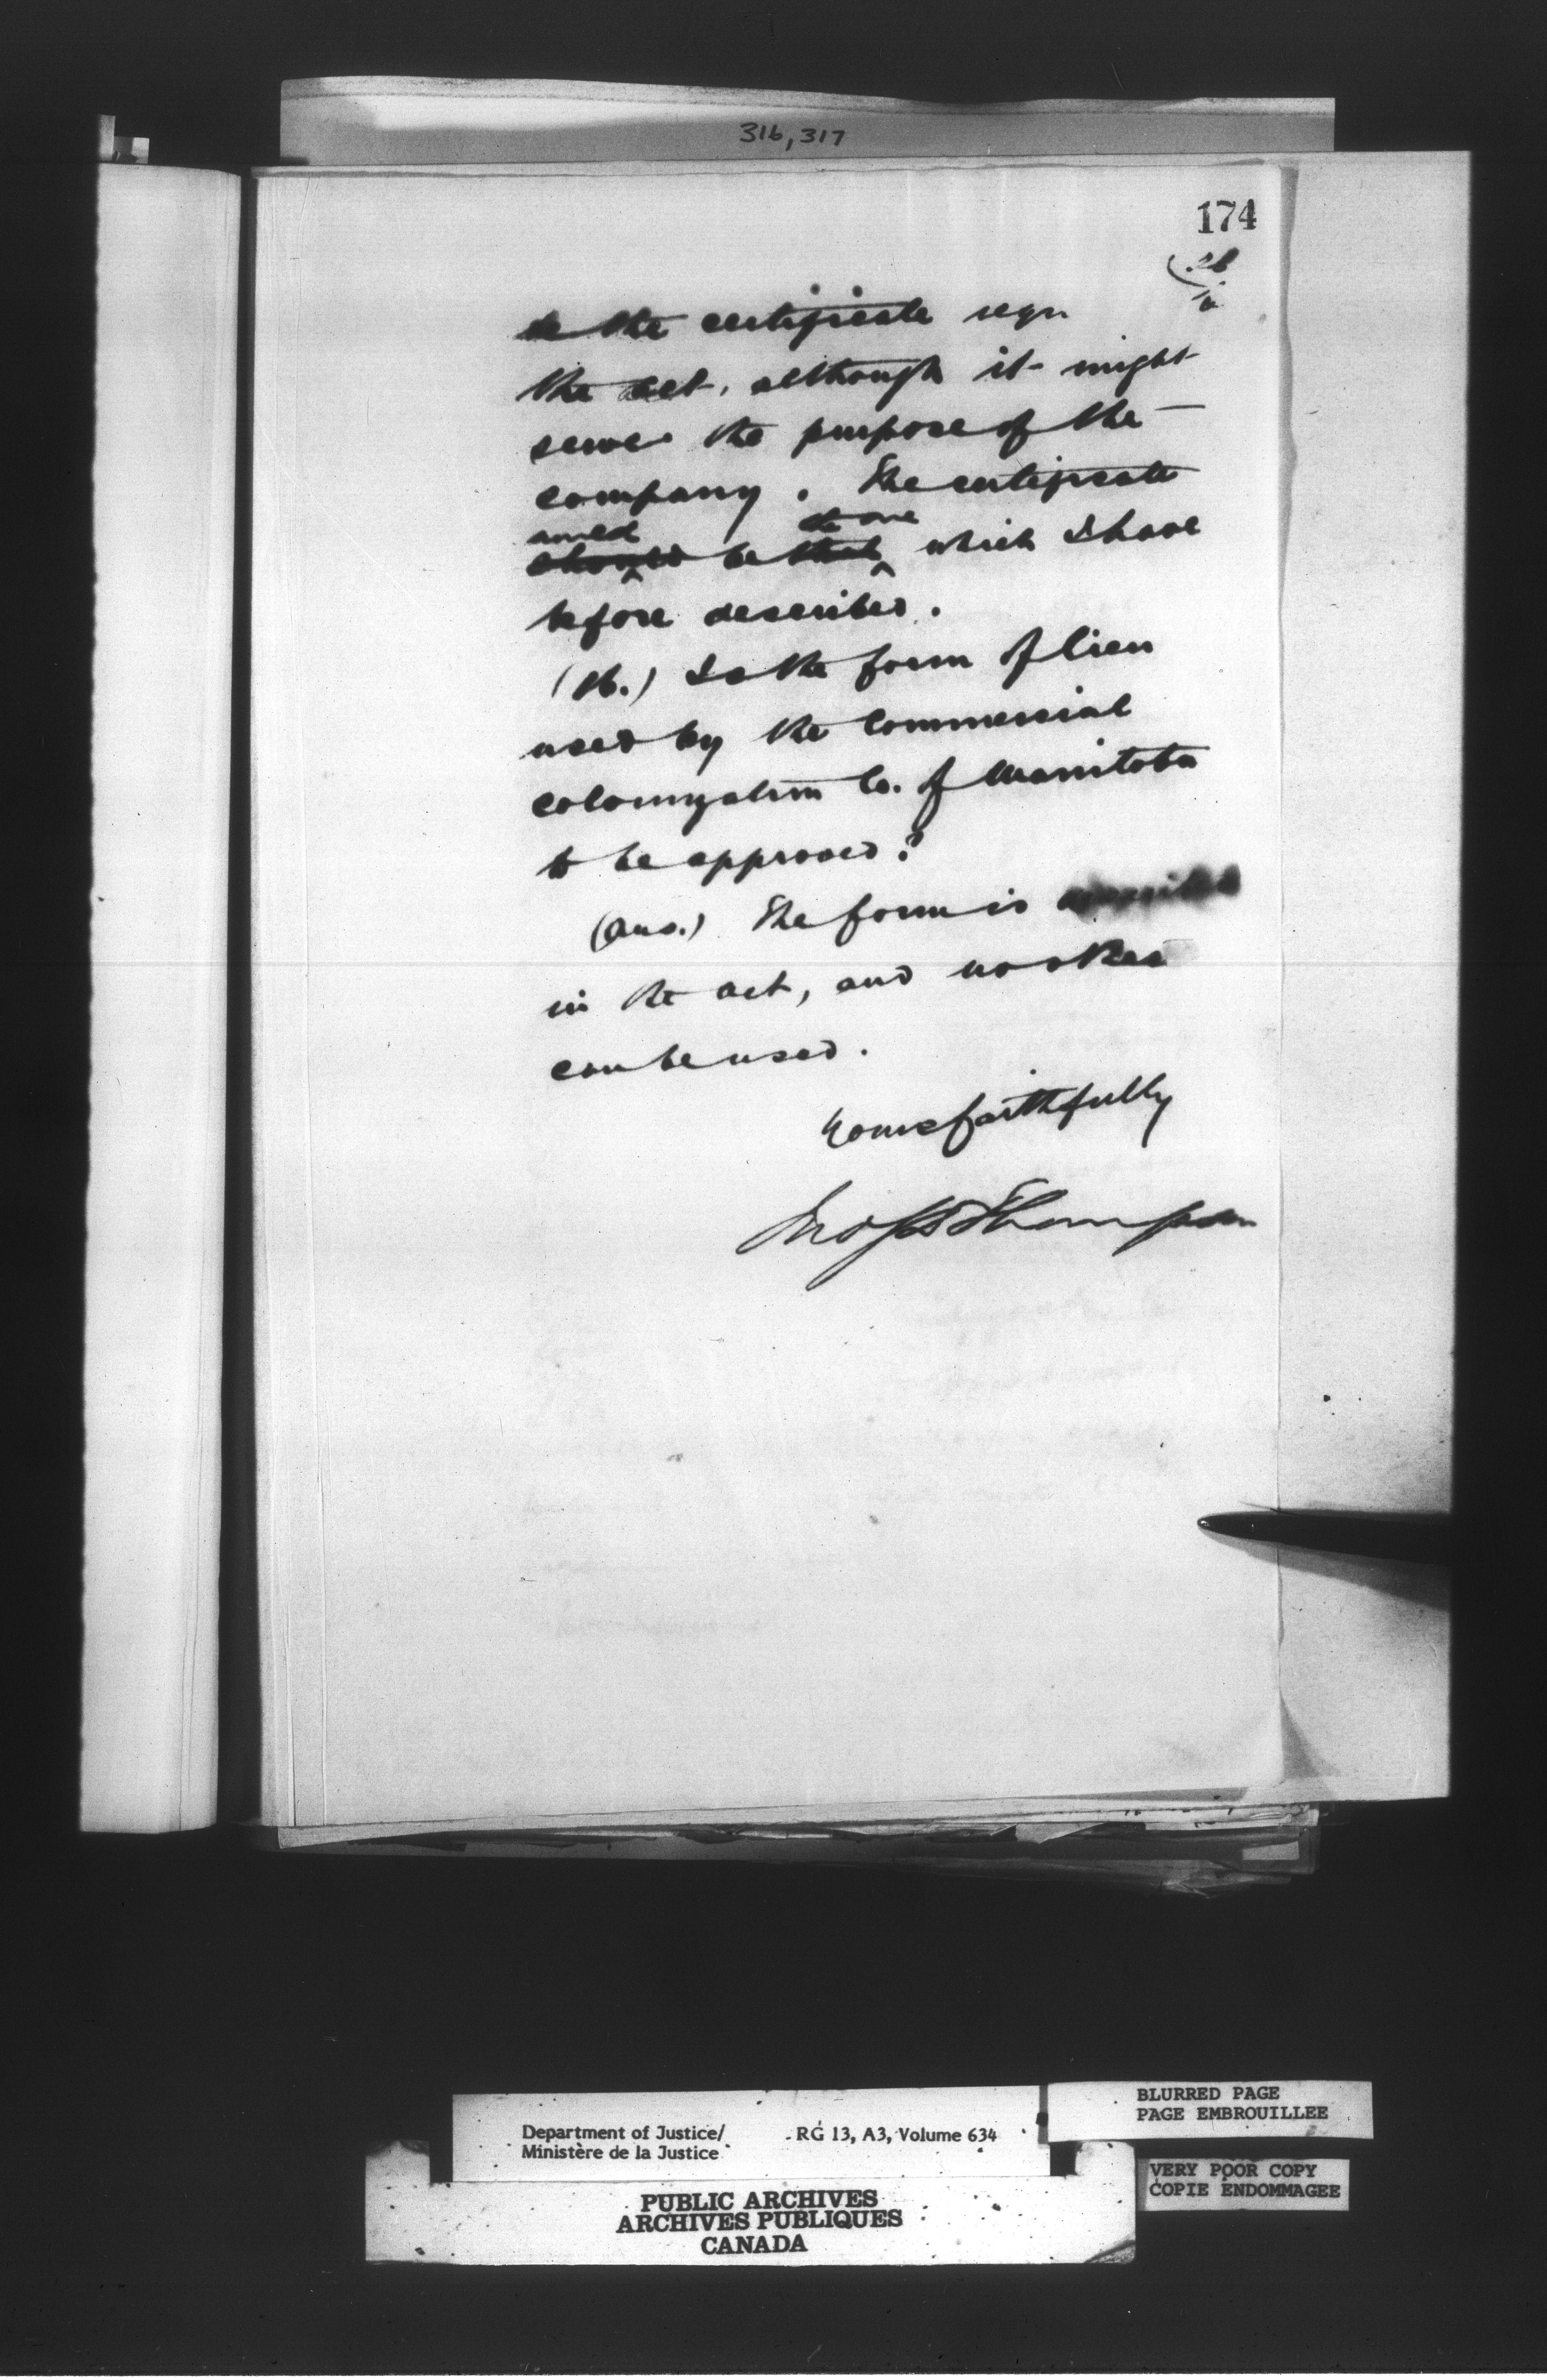 316, 317
174
be the certificate requ
the act, although it might
serve the purpose of the
company. The certificate
the one
should be that which I have
before described.
(16.) Is the form of lien
used by the Commercial
Colonization Co. of Manitoba
to be approved?
(Ans.) The form is
in the act, and no other
can be used.
Yours faithfully
Jno S D Thompson
Department of Justice/ RG 13, A3, Volume 634
Ministère de la Justice
PUBLIC ARCHIVES
ARCHIVES PUBLIQUES
CANADA
BLURRED PAGE
PAGE EMBROUILLEE
VERY POOR COPY
COPIE ENDOMMAGEE